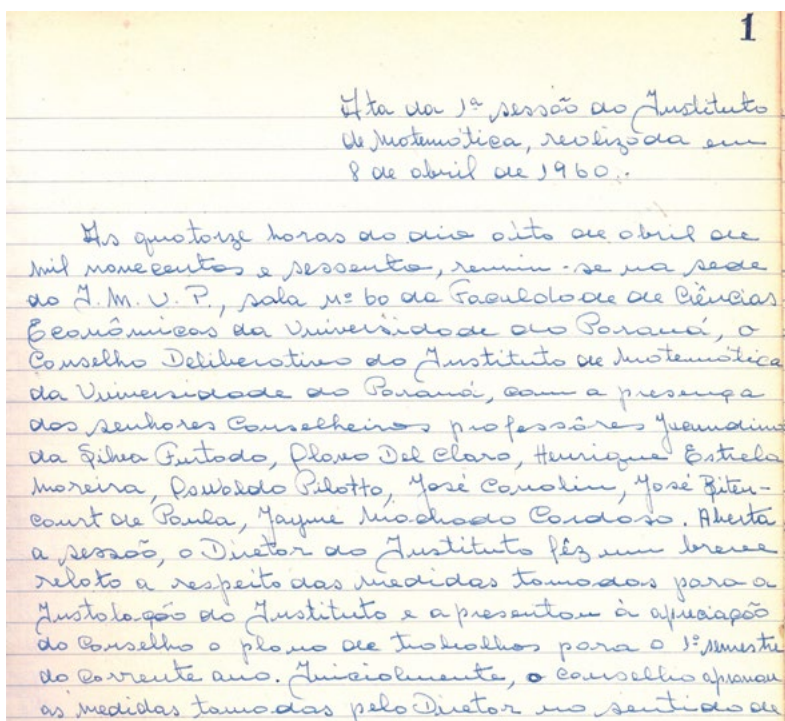 1
Ata da 1ª sessão do Instituto
de Matemática, realizada em
8 de abril de 1960.
As quatorze horas do dia oito de abril de
mil novecentos e sessenta, reuniu-se na sede
do I. M. U. P., sala nº 60 da Faculdade de Ciências
Econômicas da Universidade do Paraná, o
Conselho Deliberativo do Instituto de Matemática
da Universidade do Paraná, com a presença
dos senhores Conselheiros professôres Jucundino
da Silva Furtado, Olavo Del Claro, Henrique Estrela
Moreira, Osvaldo Pilotto, José Canolin, José Biten-
court de Paula, Jayme Machado Cardoso. Aberta
a sessão, o Diretor do Instituto fêz um breve
relato a respeito das medidas tomadas para a
Instalação do Instituto e apresentou à apreciação
do Conselho o plano de trabalhos para o 1º semestre
do corrente ano. Inicialmente, o conselho aprovou
as medidas tomadas pelo Diretor no sentido de